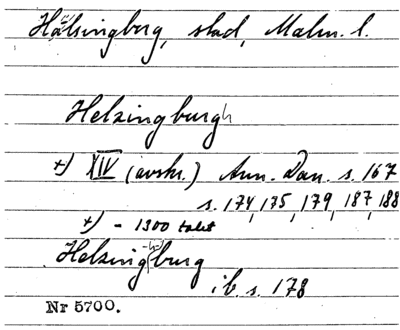 Hälsingborg, stad, Malm. l.
Helzingburgh
+) XIV (avskr.) Ann. Dan. s. 167
s. 174, 175, 179, 187, 188
+) = 1300 talet
Helzing-h-burg
ib s. 178
Nr 5700.